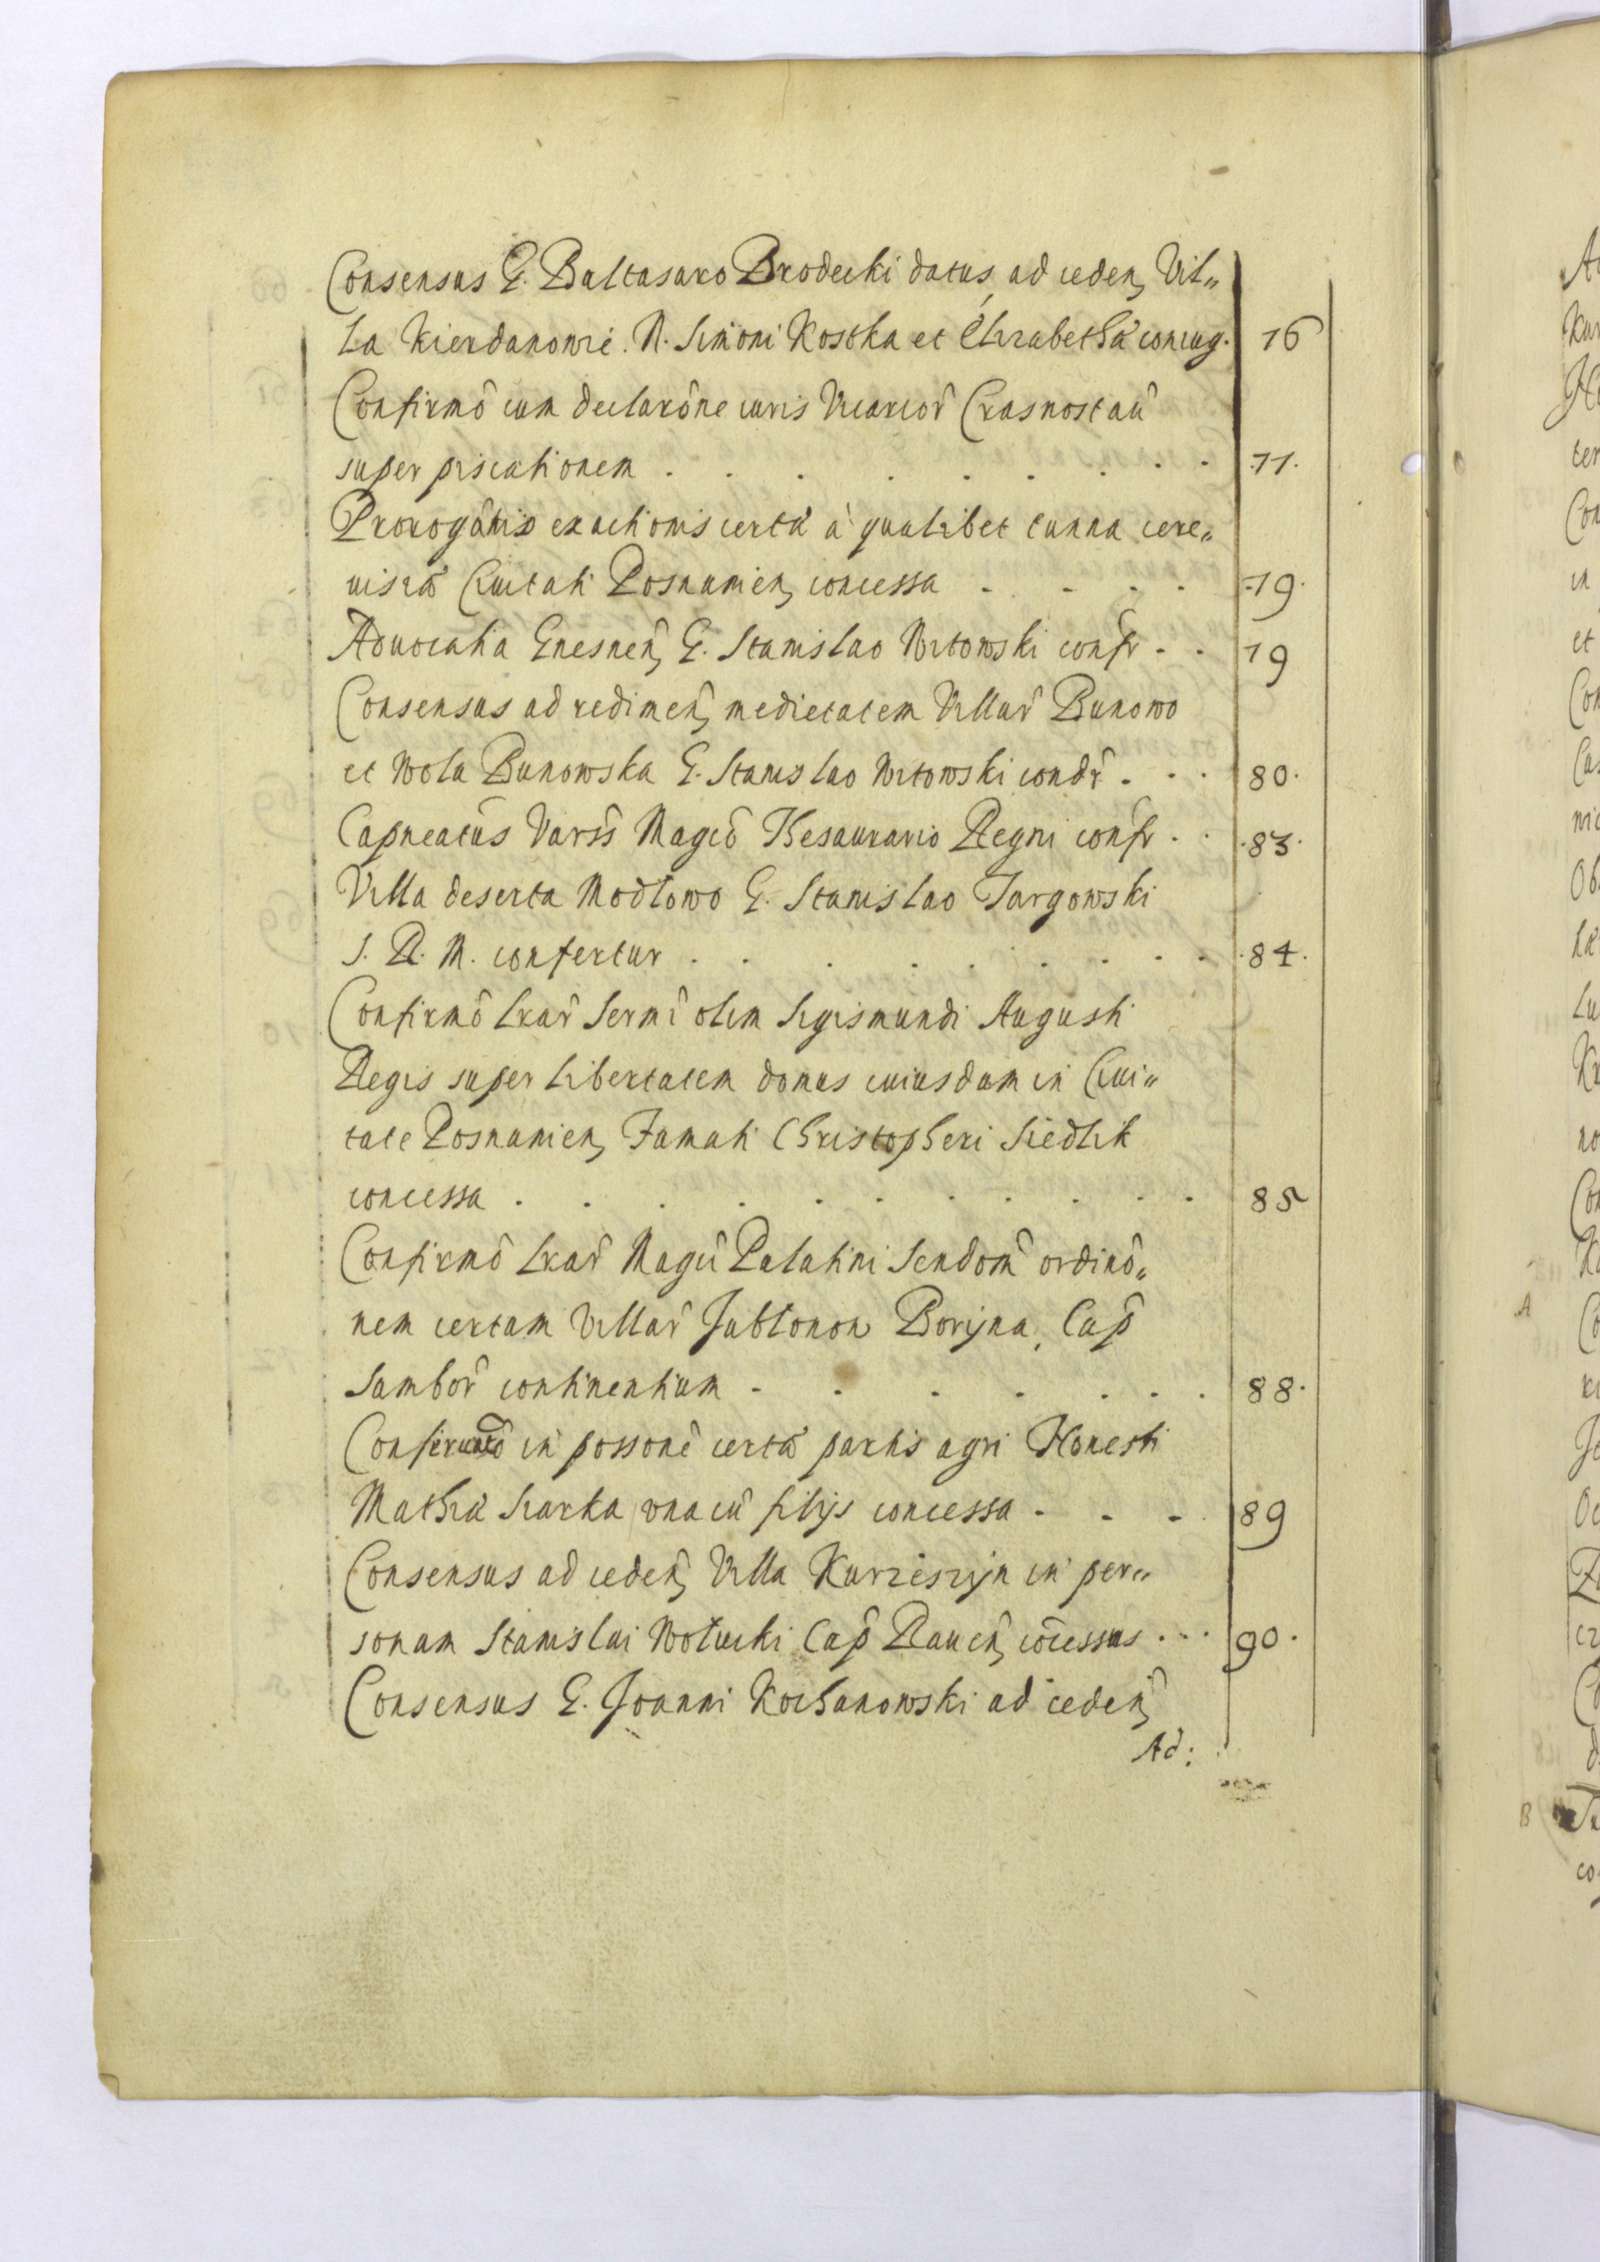 Consensus G. Baltasaro Brodecki datus ad ceden, Vil„
la Kierdanowie. N. Simoni Kostka et Elizabetha coniug. 76
Confirmô cum declarône iuris Vicarior̂ Crasnostaû
super piscationem . . . . . . . . 77.
Prorogâtis exactionis certæ à qualibet tunna cere„
uisiæ Ciuitati Posnanien, concessa . . . . 79.
Aduocatia Gnesneñ, G. Stanislao Witowski confr . . 79
Consensus ad redimeñ, medietatem Villar̂ Bunowo
et Wola Bunowska G. Stanislao Witowski condr̂ . . . 80.
Capneatûs Varŝŝ Magcô Thesaurario Regni confr . . 83.
Villa deserta Modlowo G. Stanislao Targowski
S. R. M. confertur . . . . . . . . 84.
Confirmô Lrar̂ Sermî olim Sigismundi Augusti
Regis super libertatem domus cuiusdam in Ciui„
tate Posnanien, Famati Christopheri Siedlik
concessa . . . . . . . . . . 85
Confirmô Lrar̂ Magcî Palatini Sendom̂ ordinô„
nem certam Villar̂ Jablonon Borijna, Cap̂
Sambor̂ continentium . . . . . . . 88.
in possonê certæ partis agri Honesti
Mathiæ Siarka vna cû filijs concessa . . . 89
Consensus ad cedeñ, Villa Kurzieszyn in per„
sonam Stanislai Wołucki Cap̂ Raueñ, côcessus . . . 90.
Consensus G. Joanni Kochanowski ad cedeñ,
Ad: